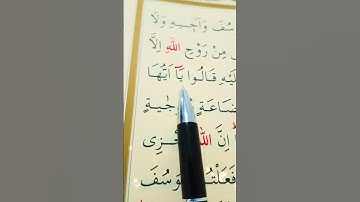 سُفَ وَاَخ۪يهِ وَلَا
مِنْ رَوْحِ اللّٰهِ اِلَّا
لَيْهِ قَالُوا يَٓا اَيُّهَا
ضَاعَةٍ مُزْجٰيةٍ
اِنَّ اللّٰهَ يَجْزِى
فَعَلْتُمْ بِيُوسُفَ